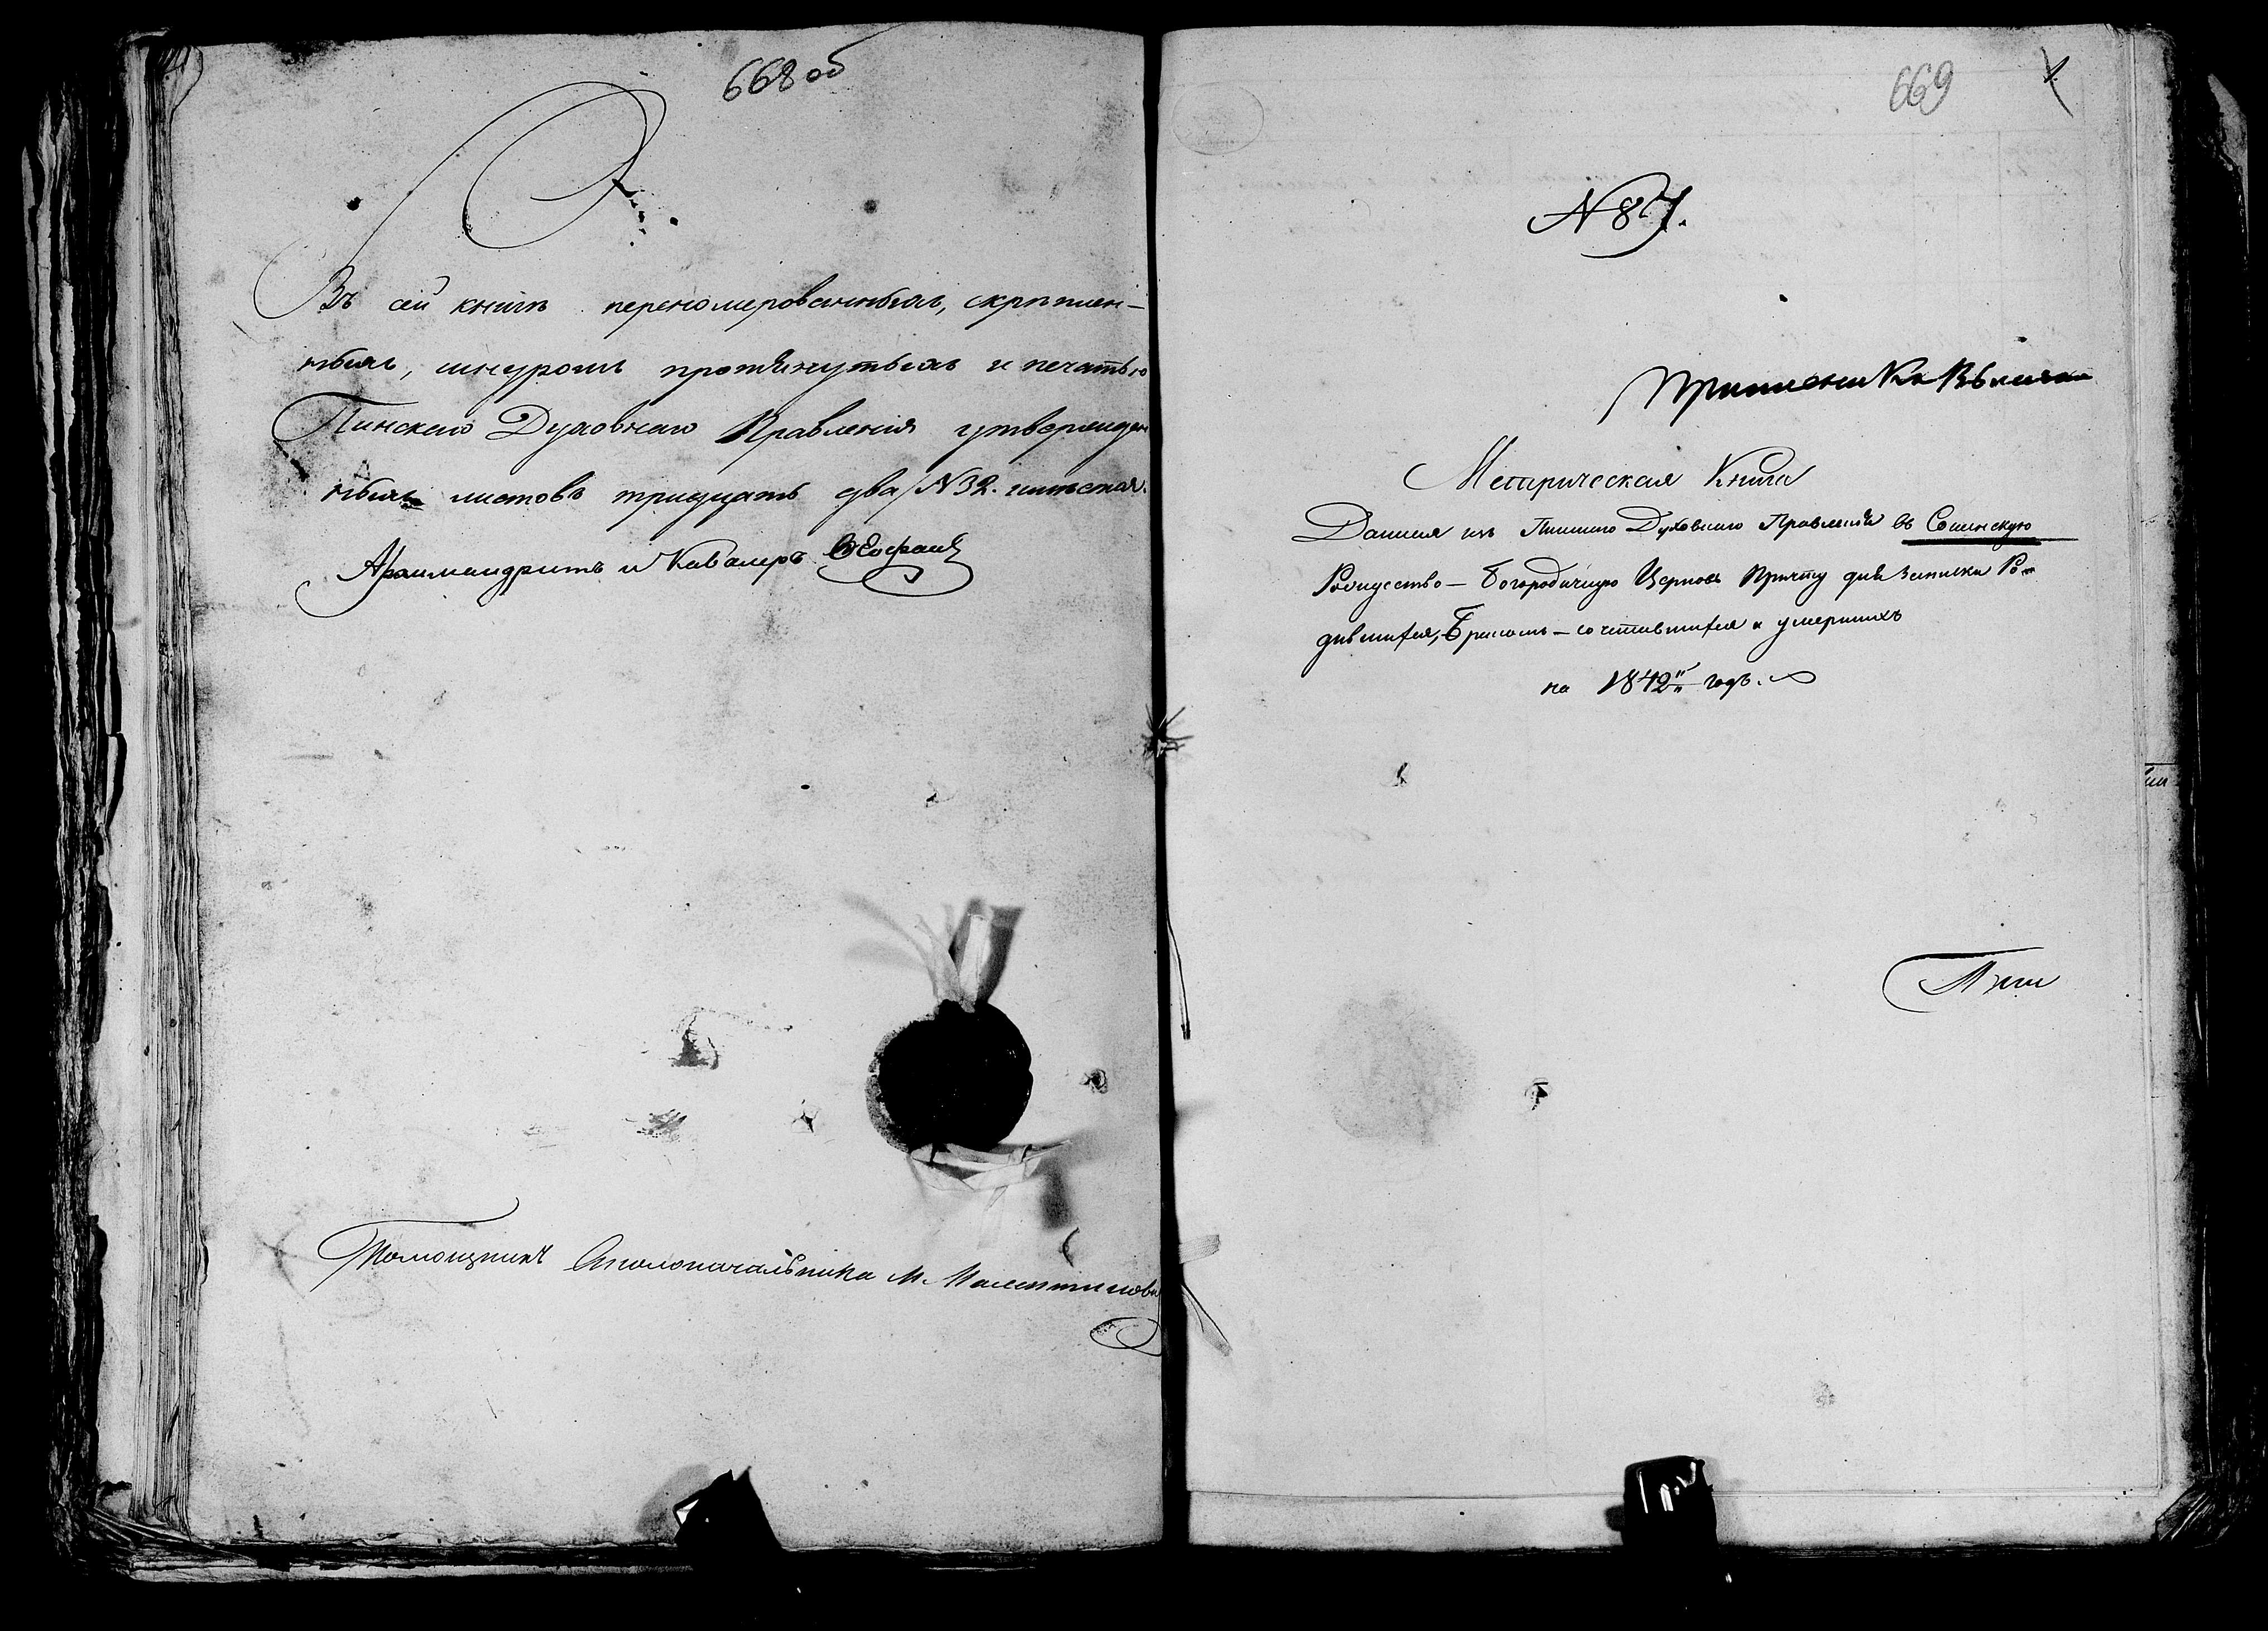 668 об
Въ сей книгѣ перенумерованныхъ, скрѣплен-
ныхъ, шнуромъ протянутыхъ и печатью
Пинскаго Духовнаго Правленія утвержден
ныхъ листовъ тридцать два / N 32.
Архимандритъ и Кавалеръ
Помощникъ Столоначальника М.
669
N 87.
Метрическая Книга
Данная изъ Пинскаго Духовнаго Правленія въ Сошнскую
Рождество-Богородичную Церковь Причту для записки Ро-
дившихся, Бракомъ-сочетавшихся и умершихъ
на 1842 годъ.